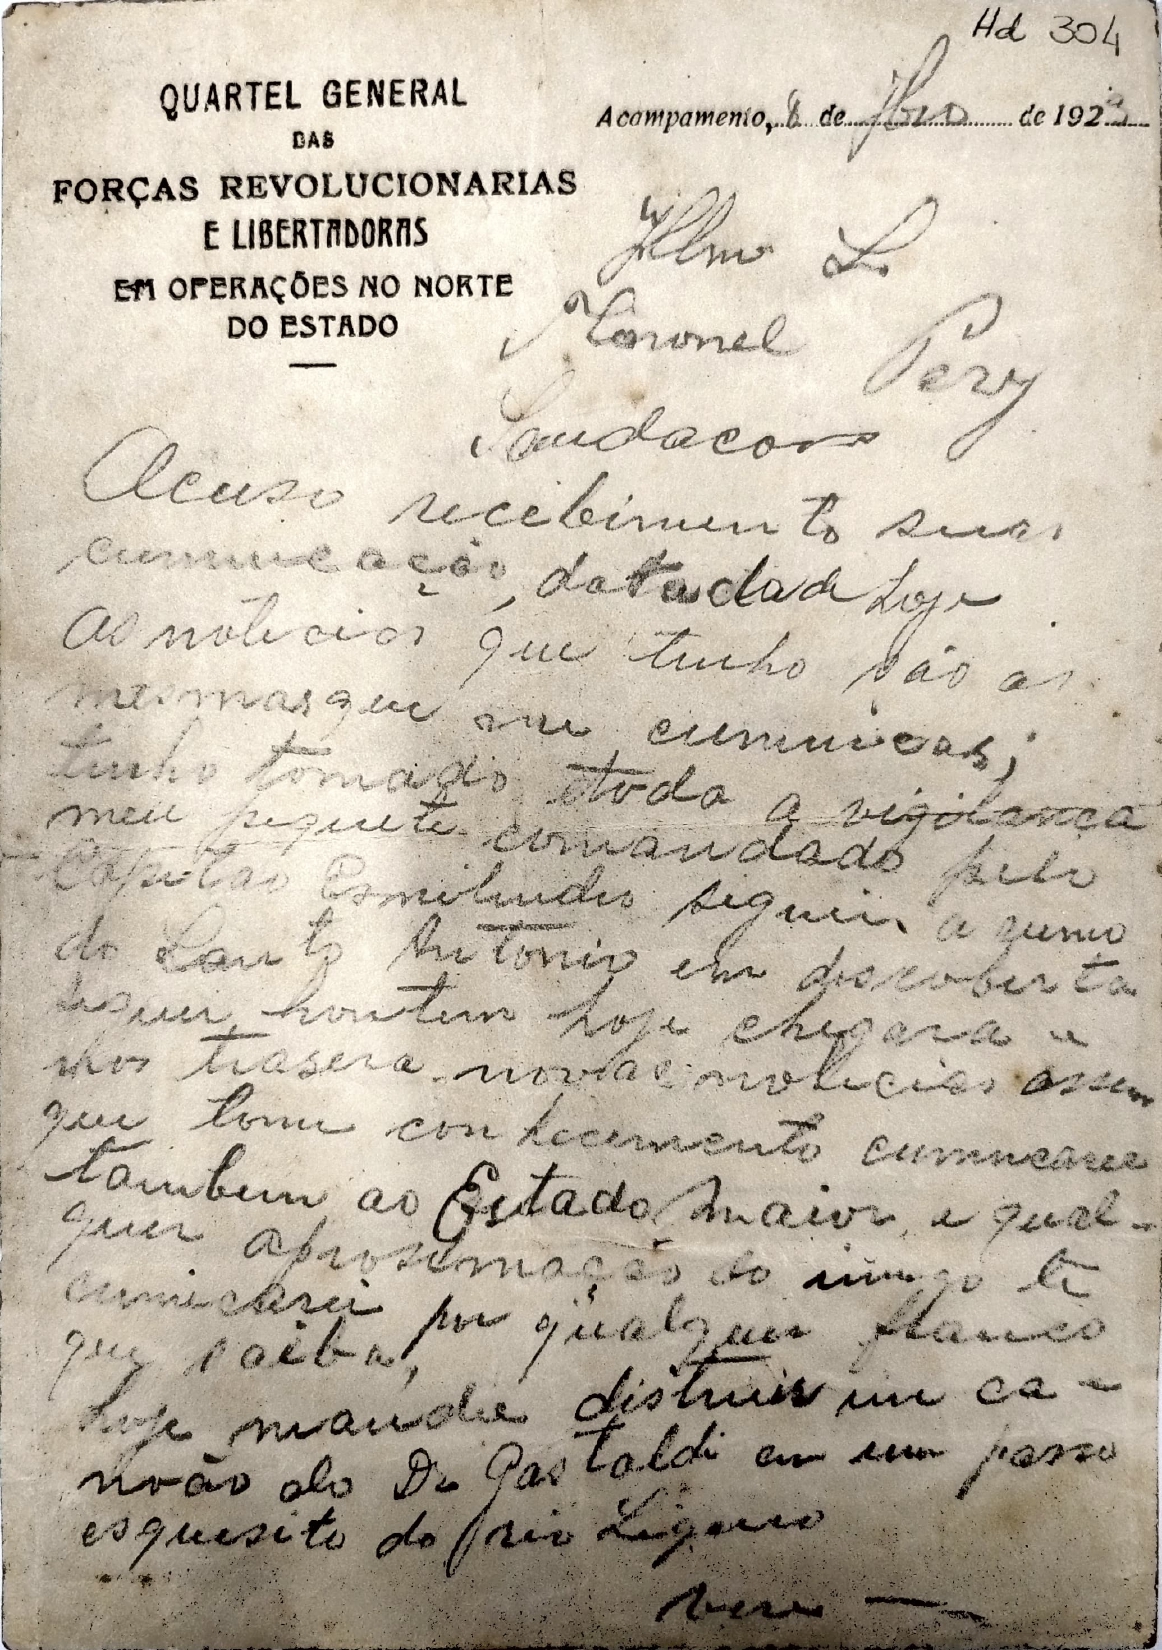 Hd 304
QUARTEL GENERAL
DAS
FORÇAS REVOLUCIONARIAS
E LIBERTADORAS
EM OPERAÇÕES NO NORTE
DO ESTADO
Acampamento, 8 de 7bro de 1923
Illmo Sr
Coronel Pery
Saudacoes
Acuso recebimento suas
cumucação, datada de hoje
As noticias que tenho são as
mesmas que me cumunicas;
tenho tomado toda a vigilanca
meu piquete comandado pelo
Capitão siguiu a rumo
do Santo Antonio em descoberta
siguiu hontem hoje chegara e
nos trasera novas noticias assim
que tome conhecimento cumucarei
tambem ao Estado Maior, e qual-
quer aprosimação do inimgo te
cumicarei por qualquer flanco
que saiba,
hoje mandei distruir um ca-
noão do Dr Gastaldi em um passo
esquesito do rio Ligeiro